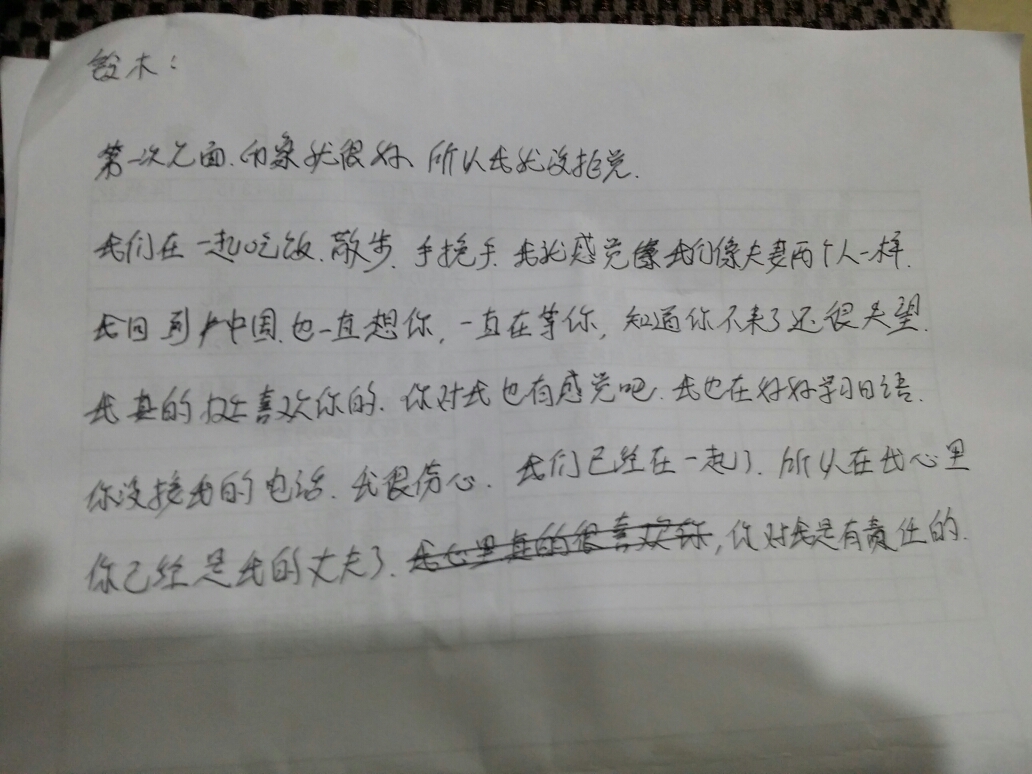 铃木：
第一次见面.印象就很好、所以我就没拒绝.
我们在一起吃饭、散步、手挽手.我就感觉像我们像夫妻两个人一样.
我回到中国.也一直想你，一直在等你，知道你不来了还很失望.
我真的挺喜欢你的、你对我也有感觉吧.我也在好好学习日语.
你没接我的电话.我很伤心.我们已经在一起了.所以在我心里
你已经是我的丈夫了.我心里真的很喜欢你，你对我是有责任的.